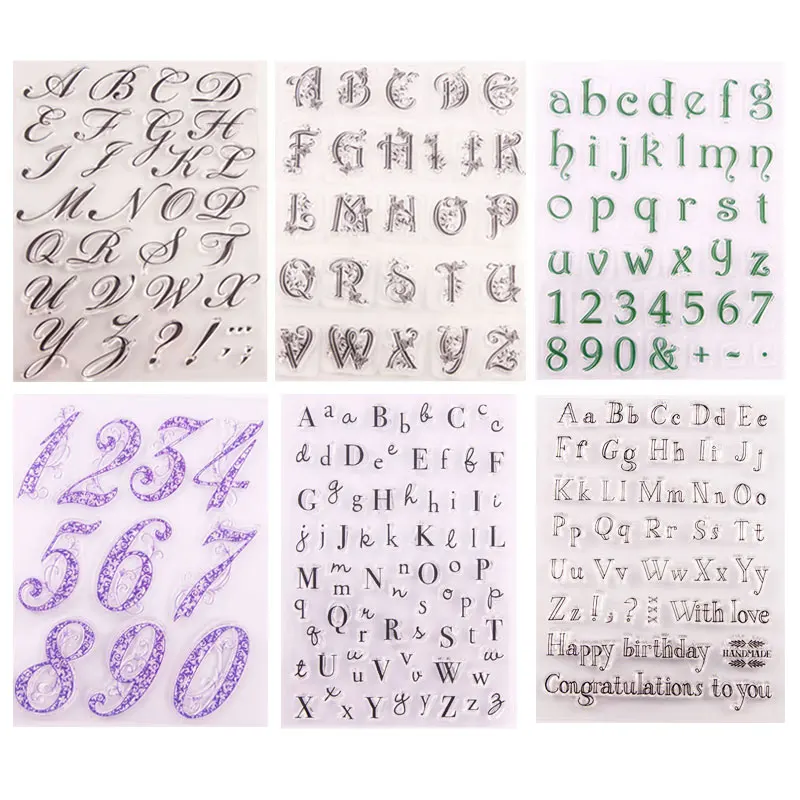 A B C D
E F G H
I J K L
M N O P
Q R S T
U V W X
Y Z ? ! ... , ;
A B C D E
F G H I K
L M N O P
Q R S T U
V W X Y Z
a b c d e f g
h i j k l m n
o p q r s t
u v w x y z
1 2 3 4 5 6 7
8 9 0 & + - .
1 2 3 4
5 6 7
8 9 0
A a a B b b C c c
d d D e e E f f F
G g g H h h i I i
j j J k k K l l L
M m m N n n O o o P
q q Q r r R s s S t p p T
t U u u V v v W w w
X x x Y y y Z z z
Aa Bb Cc Dd Ee
Ff Gg Hh Ii Jj
Kk Ll Mm Nn Oo
Pp Qq Rr Ss Tt
Uu Vv Ww Xx Yy
Zz ! , ? xxx With love
Happy birthday HANDMADE
Congratulations to you